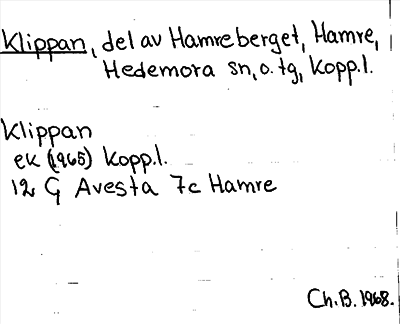 Klippan, del av Hamreberget, Hamre,
Hedemora sn, o. tg, Kopp.l.
Klippan
ek (1965) Kopp.l.
12 G Avesta 7c Hamre
Ch.B. 1968.